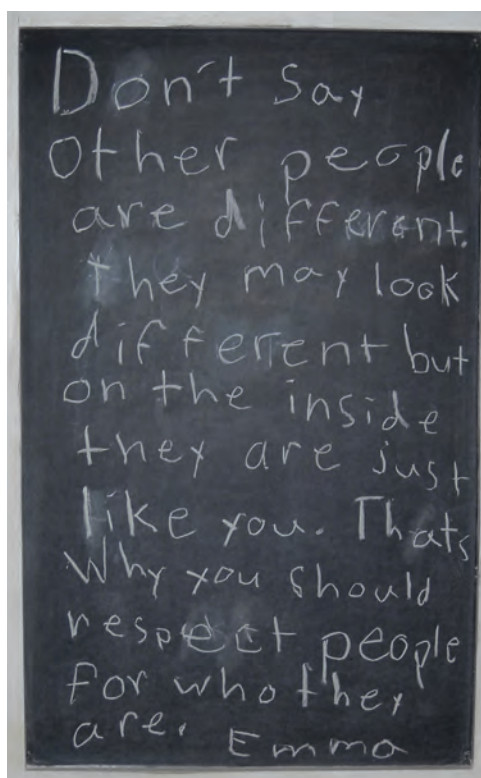 Don't say
Other people
are different.
they may look
different but
on the inside
they are just
like you. Thats
Why you should
respect people
for who they
are. Emma